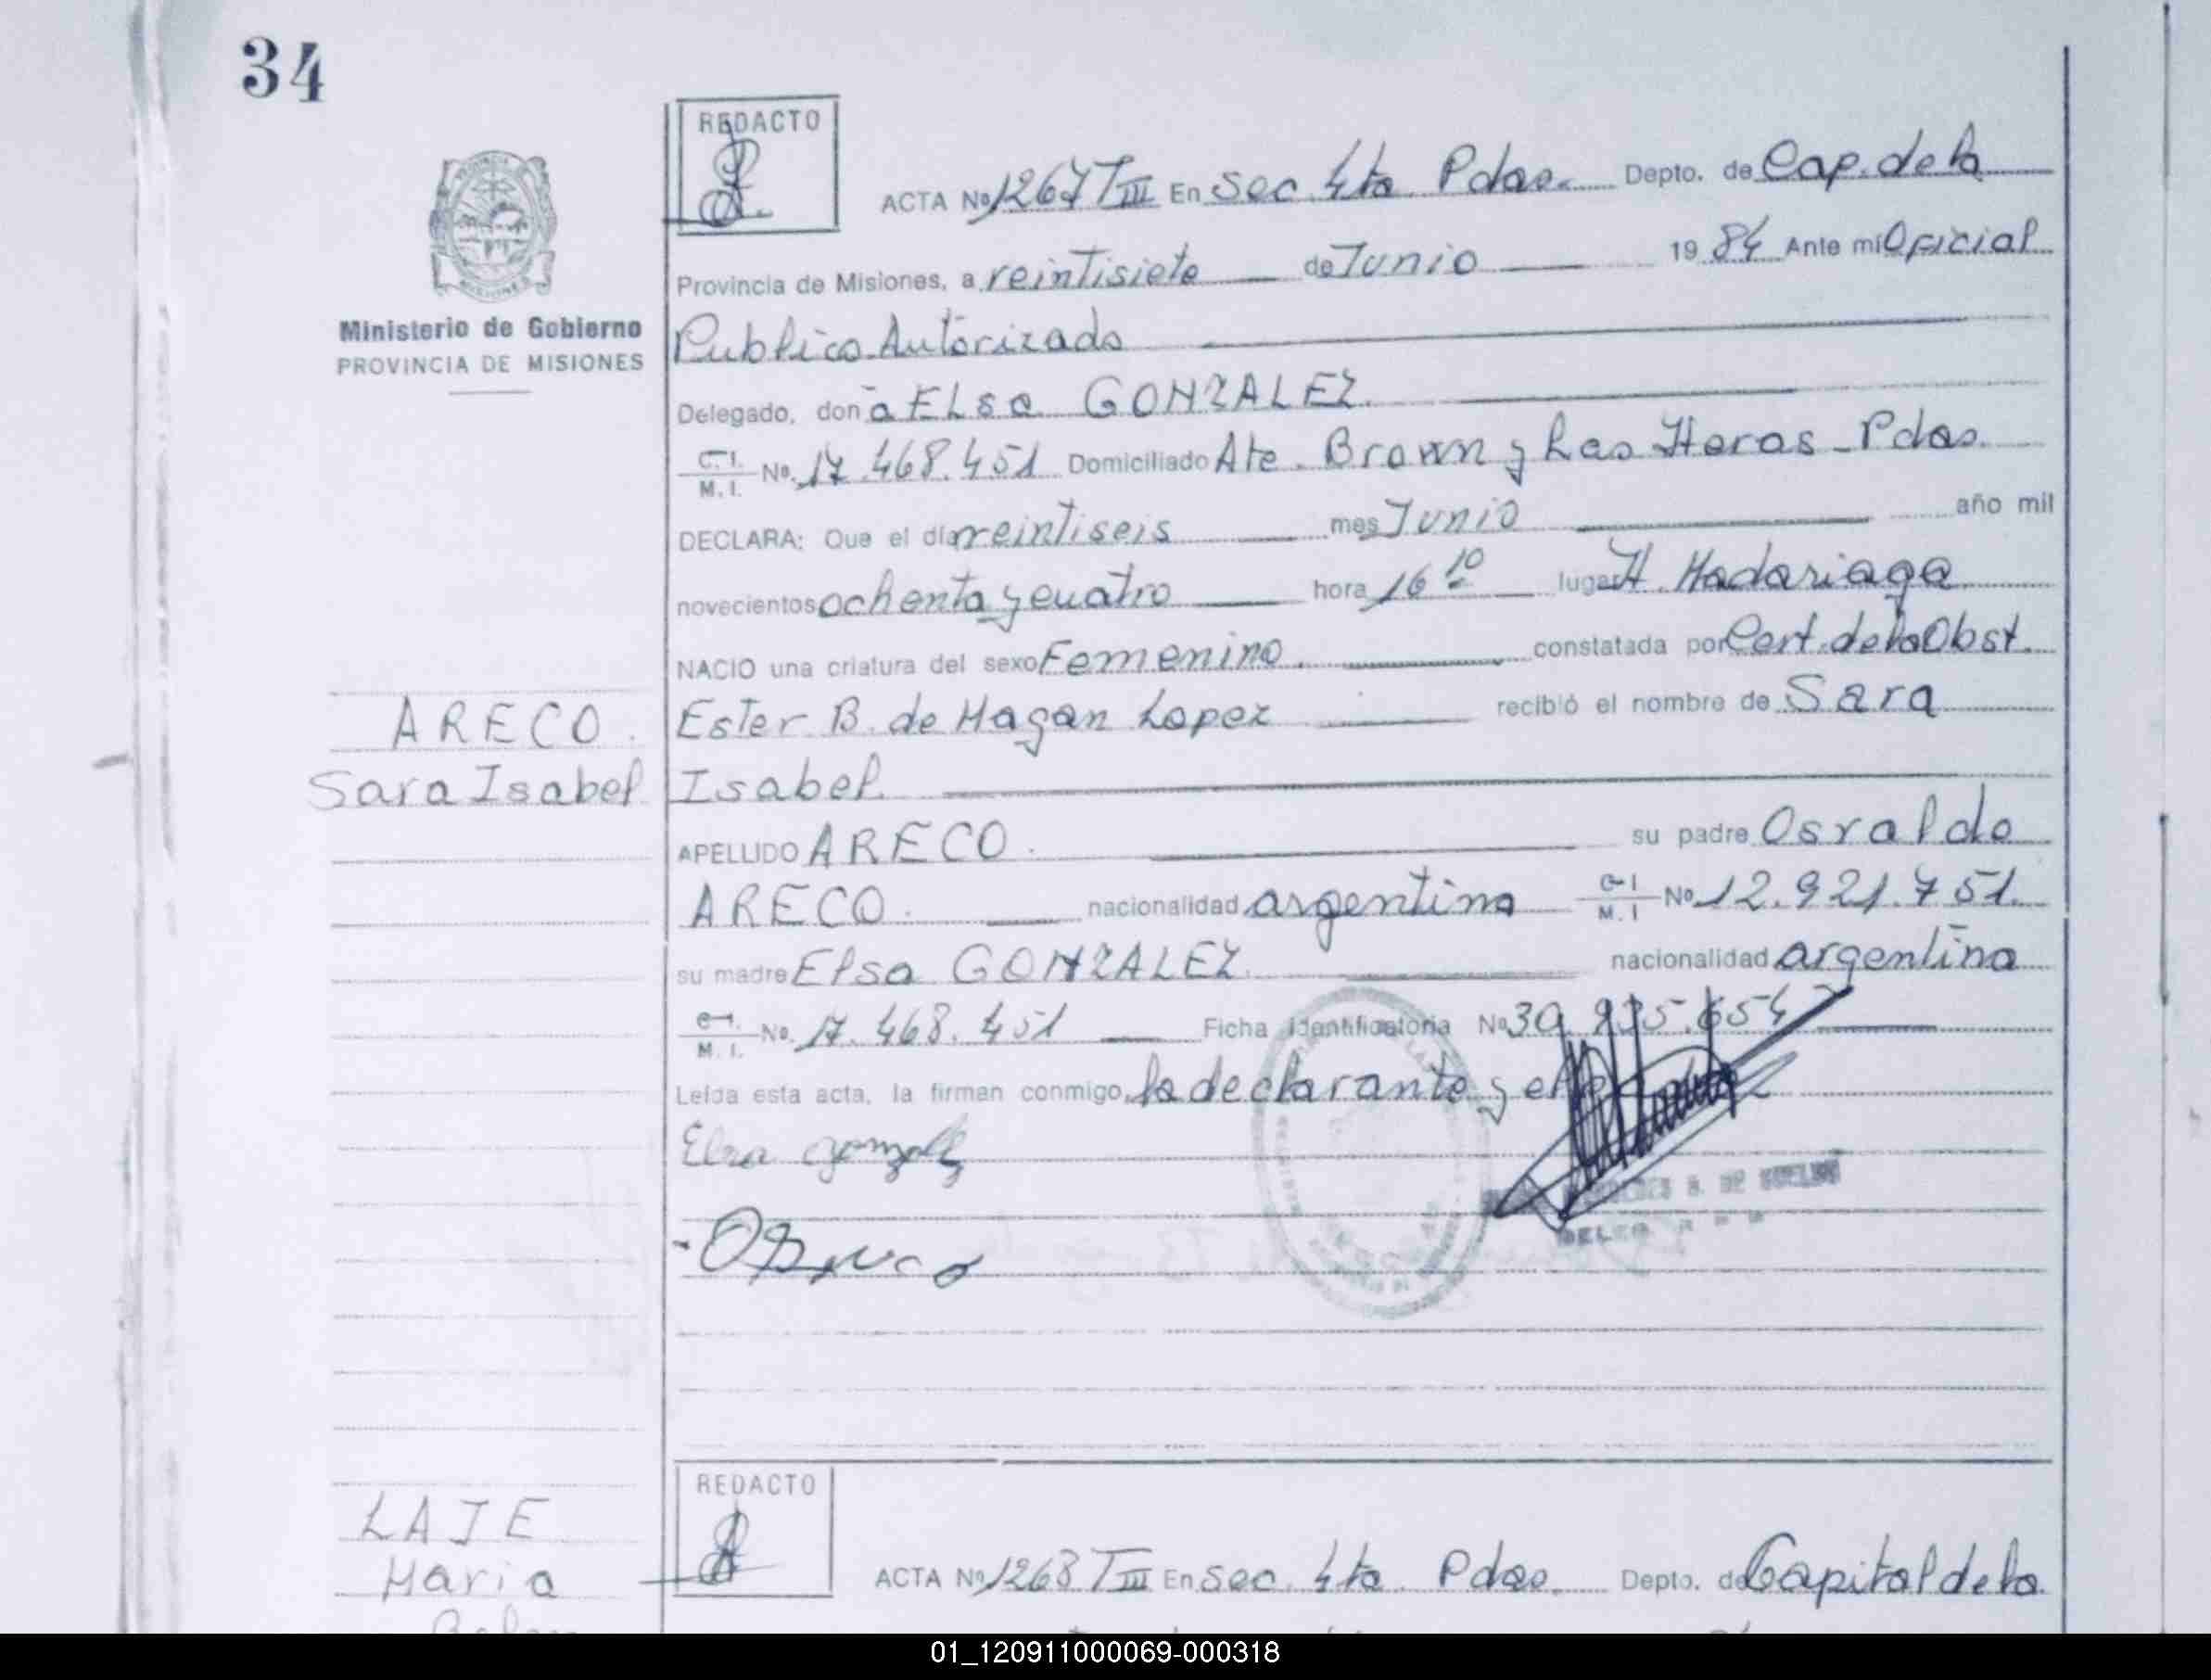 34
REDACTO
ACTA Nº 1267 TIII En Sec. 4ta Pdas. Depto. de Cap. de la
Provincia de Misiones, a veintisiete de Junio 1984 Ante mí Oficial
Ministerio de Gobierno
PROVINCIA DE MISIONES
Publico Autorizado
Delegado, doña ELsa GONZALEZ.
C.I. M.I. Nº. 17.468.451 Domiciliado Ate. Brown y Las Heras - Pdas.
DECLARA: Que el día veintiseis mes Junio año mil
novecientos ochenta y cuatro hora 16 10 lugar H. Madariaga
NACIO una criatura del sexo Femenino. constatada por Cert. de la Obst.
ARECO.
Sara Isabel
Ester B. de Hagan Lopez recibió el nombre de Sara
Isabel.
APELLIDO ARECO. su padre Osvaldo
ARECO. nacionalidad argentina C.I. M.I Nº 12.921.751.
su madre Elsa GONZALEZ. nacionalidad argentina
C.I. M.I. Nº. 17.468.451 Ficha Identificatoria Nº 30.935.654
Leída esta acta, la firman conmigo, la declarante y el
Elsa Gonzalez
LAJE
Maria
REDACTO
ACTA Nº 1268 TIII En Sec. 4ta Pdas. Depto. de Capital de la
01_120911000069-000318